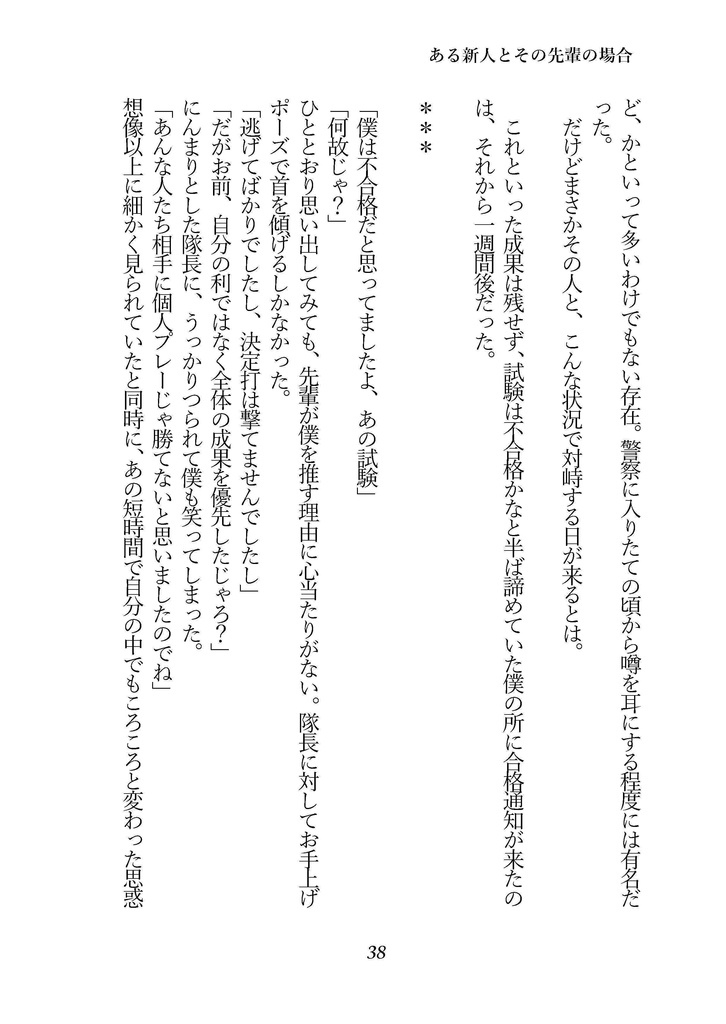 ある新人とその先輩の場合
ど、かといって多いわけでもない存在。警察に入りたての頃から噂を耳にする程度には有名だ
った。
だけどまさかその人と、こんな状況で対峙する日が来るとは。
これといった成果は残せず、試験は不合格かなと半ば諦めていた僕の所に合格通知が来たの
は、それから一週間後だった。
＊＊＊
「僕は不合格だと思ってましたよ、あの試験」
「何故じゃ？」
ひととおり思い出してみても、先輩が僕を推す理由に心当たりがない。隊長に対してお手上げ
ポーズで首を傾げるしかなかった。
「逃げてばかりでしたし、決定打は撃てませんでしたし」
「だがお前、自分の利ではなく全体の成果を優先したじゃろ？」
にんまりとした隊長に、うっかりつられて僕も笑ってしまった。
「あんな人たち相手に個人プレーじゃ勝てないと思いましたのでね」
想像以上に細かく見られていたと同時に、あの短時間で自分の中でもころころと変わった思惑
38